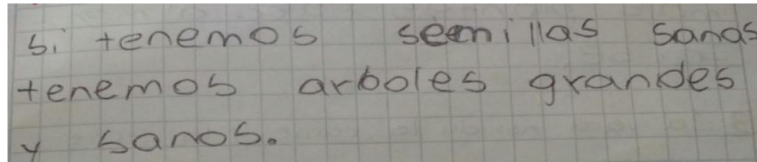 si tenemos semillas sanas
tenemos arboles grandes
y sanos.